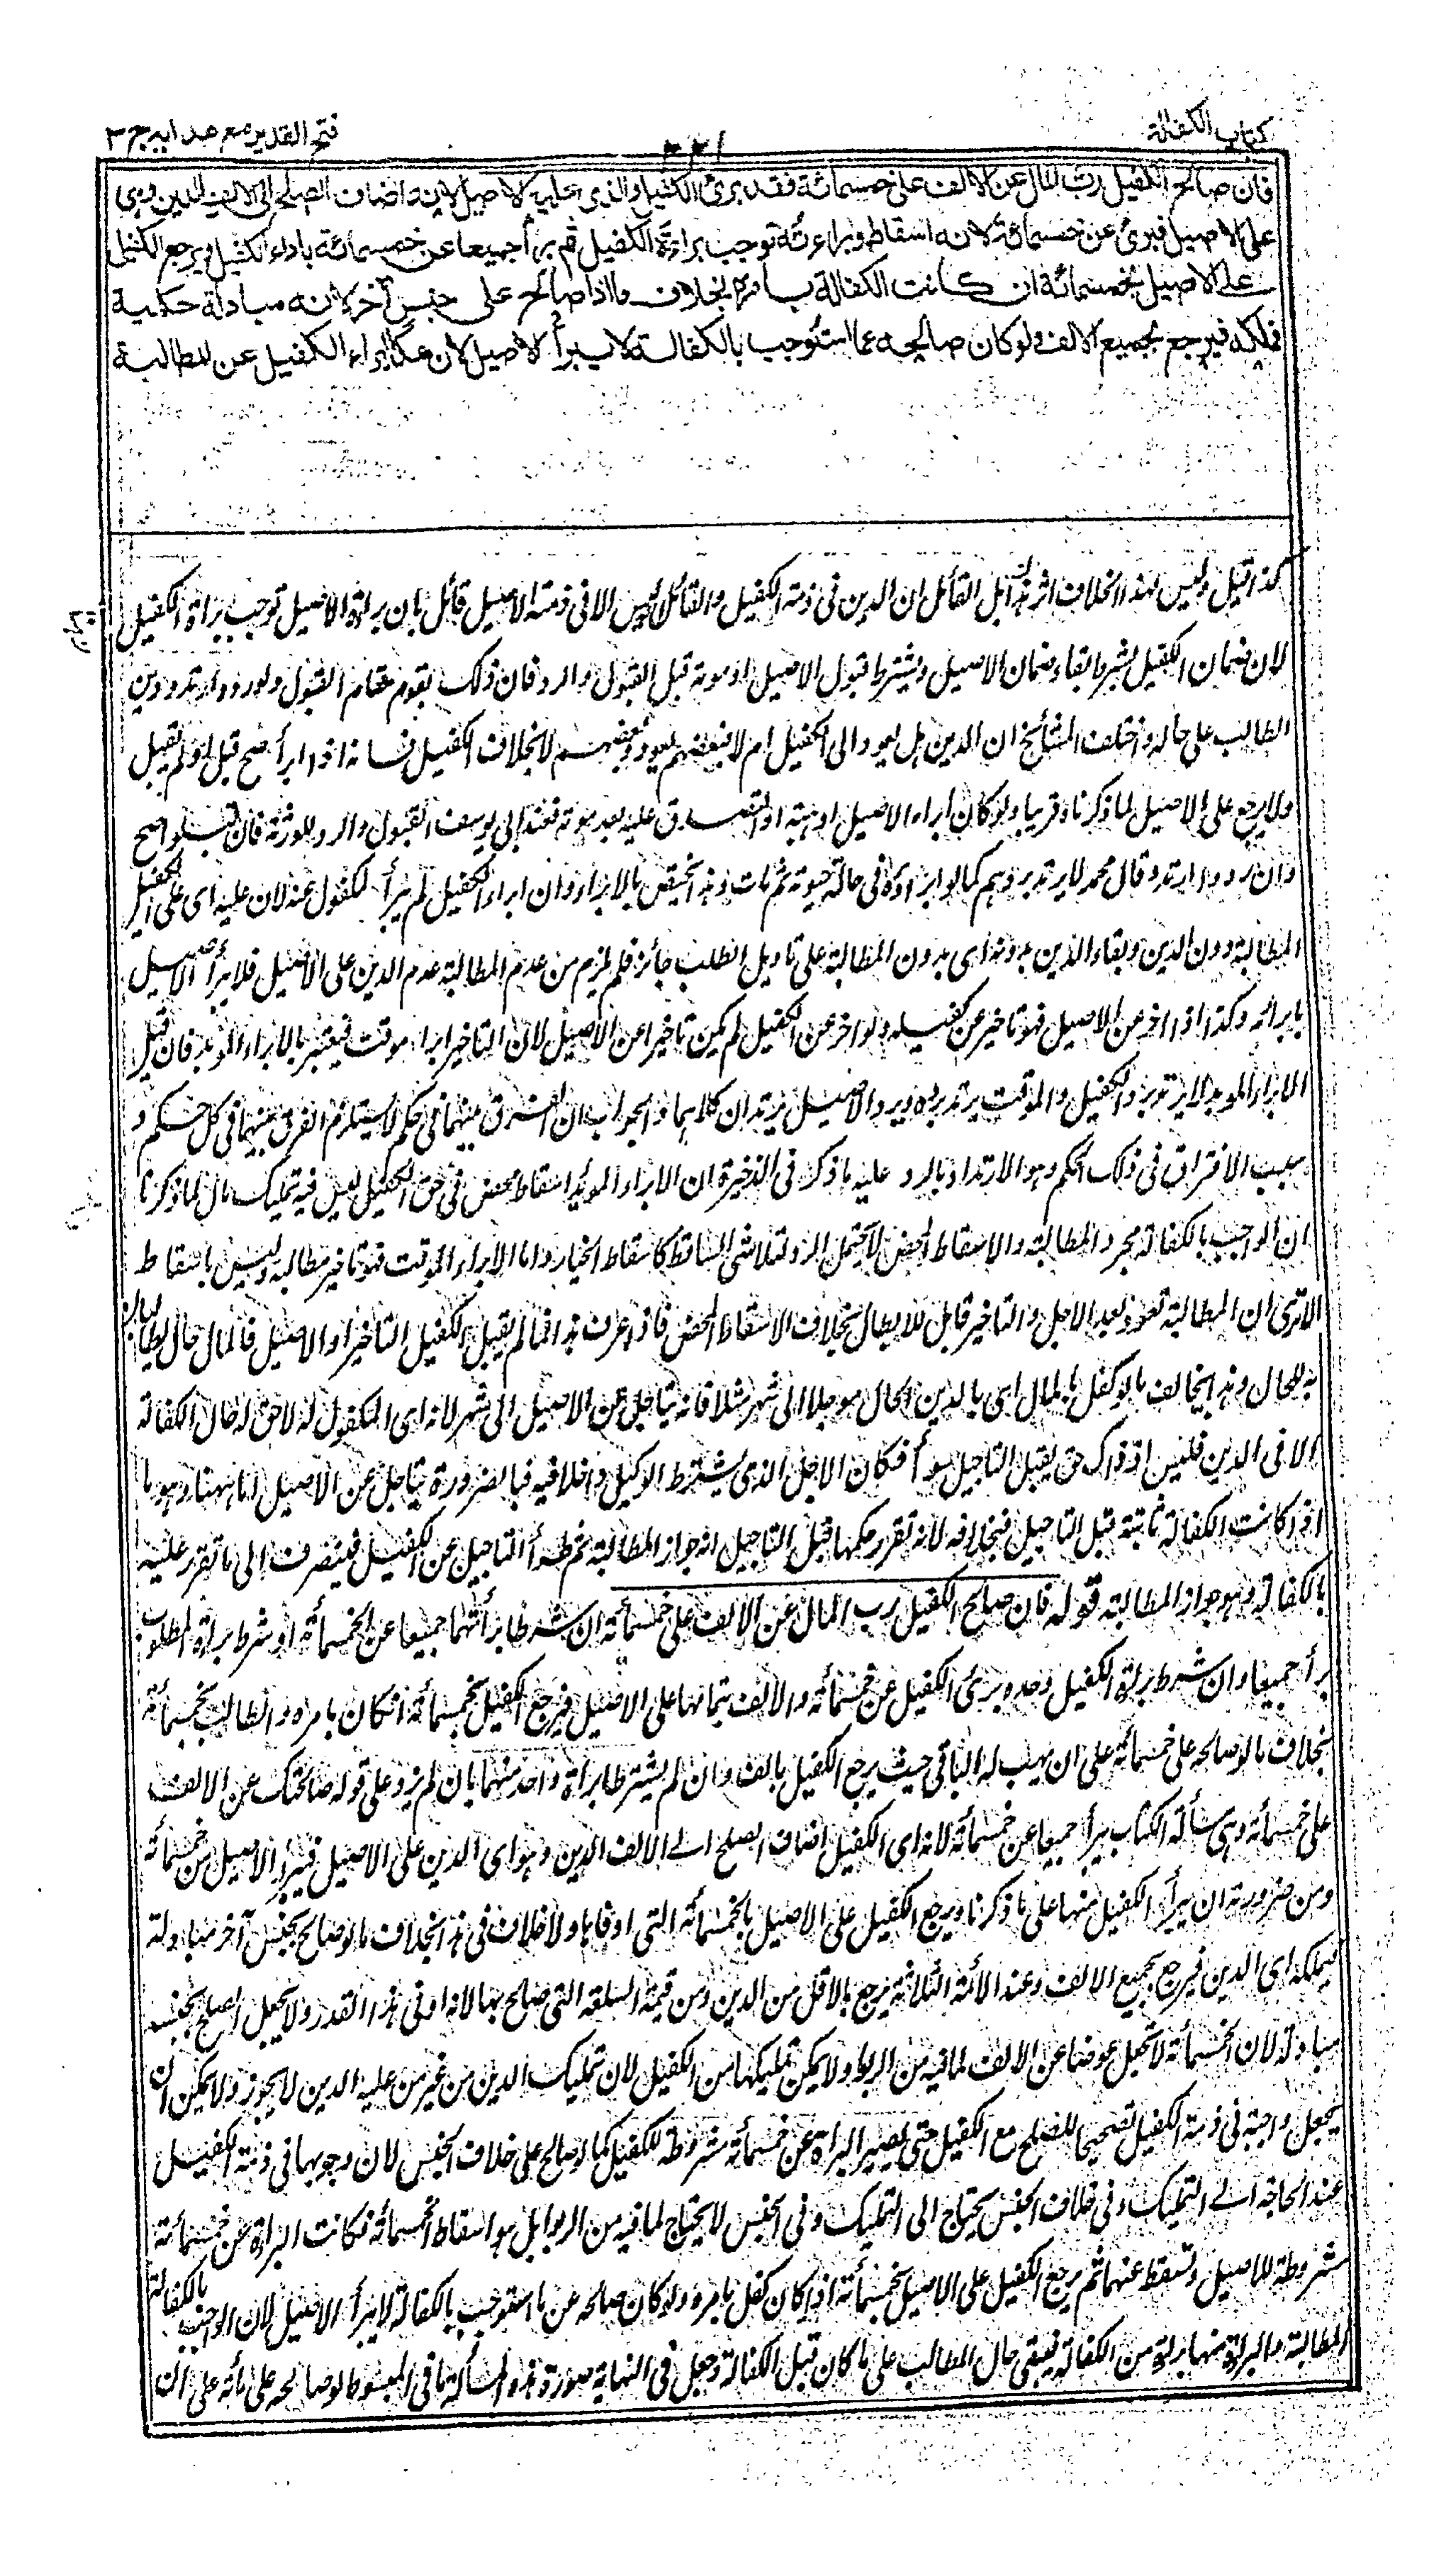 كتاب الكفالة
فتح القدير مع هدايه ج ٣
فان صالح الكفيل رب المال عن الالف على خمسمائة فقد برئ الكفيل والذى عليه الاصيل لانه اضاف الصلح الى الالف الدين وهى
على الاصيل فبرئ عن خمسمائة لانه اسقاط وبراءته توجب براءة الكفيل ثم برأ جميعا عن خمسمائة باداء الكفيل ويرجع الكفيل
على الاصيل بخمسمائة ان كانت الكفالة بامره بخلاف ما اذا صالح على جنس آخر لانه مبادلة حكمية
فملكه فيرجع بجميع الالف ولو كان صالحه عما استوجب بالكفالة لا يبرأ الاصيل لان هذا ابراء الكفيل عن المطالبة
كذا قيل وليس لهذا الخلاف اثر بل القائل ان الدين فى ذمة الكفيل والقائل ليس الا فى ذمة الاصيل قائل بان براءة الاصيل توجب براءة الكفيل
لان ضمان الكفيل بشرط بقاء ضمان الاصيل ويشترط قبول الاصيل او موته قبل القبول والرد فان ذلك يقوم مقام القبول ولو رده ارتد ودين
الطالب على حاله واختلف المشائخ ان الدين هل يعود الى الكفيل ام لا فبعضهم يعود وبعضهم لا بخلاف الكفيل فانه اذا ابرأ صح قبل او لم يقبل
ولا يرجع على الاصيل لما ذكرنا وقريبا ولو كان ابراء الاصيل او هبته او التصدق عليه بعد موته فعند ابى يوسف القبول والرد للورثة فان قبلوا صح
وان ردوا ارتد وقال محمد لا يرتد بردهم كما لو ابرأه فى حالة حيوته ثم مات وهذا يختص بالابراء وان ابراء الكفيل لم يبرأ المكفول عنه لان عليه اى على الكفيل
المطالبة دون الدين وبقاء الدين بدونه اى بدون المطالبة على تاويل الطلب جائز فلم يلزم من عدم المطالبة عدم الدين على الاصيل فلا يبرأ الاصيل
بابرائه وكذا اذا اخر عن الاصيل فهو تاخير عن كفيله ولو اخر عن الكفيل لم يكن تاخيرا عن الاصيل لان التاخير ابراء موقت فيعتبر بالابراء الموبد فان قيل
الابراء الموبد لا يرتد برد الكفيل والموقت يرتد برده وبرد الاصيل يرتدان كلاهما والجواب ان الفرق بينهما فى حكم لا يستلزم الفرق بينهما فى كل حكم و
سبب الافتراق فى ذلك الحكم وهو الارتداد بالرد عليه ما ذكر فى الذخيرة ان الابراء الموبد اسقاط محض فى حق الكفيل ليس فيه تمليك مال لما ذكرنا
ان الواجب بالكفالة مجرد المطالبة والاسقاط المحض لا يحتمل الرد لتلاشى الساقط كاسقاط الخيار واما الابراء الموقت فهو تاخير مطالبة وليس باسقاط
الا ترى ان المطالبة تعود بعد الاجل والتاخير قابل للابطال بخلاف الاسقاط المحض فاذا عرف هذا فما لم يقبل الكفيل التاخير او الاصيل فالمال حال يطالبان
به للحال وهذا بخالف ما لو كفل بالمال اى بالدين الحال موجلا الى شهر مثلا فانه يتاجل عن الاصيل الى شهر لانه اى المكفول له لا حق له حال الكفالة
الا فى الدين فليس اذ ذاك حق يقبل التاجيل سوأ فكان الاجل الذى يشترط الوكيل داخلا فيه فبالضرورة يتاجل عن الاصيل اما ههنا وهو ما
اذا كانت الكفالة ثابتة قبل التاجيل فبخلافه لانه تقرر حكمها قبل التاجيل انه جواز المطالبة ثم طرأ التاجيل عن الكفيل فينصرف الى ما تقرر عليه
بالكفالة وهو جواز المطالبة قوله فان صالح الكفيل رب المال عن الالف على خمسمائة ان شرطا برأتهما جميعا عن الخمسمائة او شرط براءة المطلوب
برأ جميعا وان شرط براءة الكفيل وحده برئ الكفيل عن خمسمائة والالف بتمامها على الاصيل فيرجع الكفيل بخمسمائة ان كان بامره والطالب بخمسمائة
بخلاف ما لو صالحه على خمسمائة على ان يهب له الباقى حيث يرجع الكفيل بالف وان لم يشترطا براءة واحد منهما بان لم يزد على قوله صالحتك عن الالف
على خمسمائة وهى مسألة الكتاب يبرأ جميعا عن خمسمائة لانه اى الكفيل اضاف الصلح الى الالف الدين وهو اى الدين على الاصيل فيبرأ الاصيل من خمسمائة
ومن ضرورته ان يبرأ الكفيل منها على ما ذكرنا ويرجع الكفيل على الاصيل بالخمسمائة التى اوفاها ولا خلاف فى هذا بخلاف ما لو صالح بجنس آخر مبادلة
فيملكه اى الدين فيرجع بجميع الالف وعند الائمة الثلاثة يرجع بالاقل من الدين ومن قيمة السلعة التى صالح بها لانه اوفى هذا القدر ولا يجعل الصلح بجنسه
مبادلة لان الخمسمائة لا تجعل عوضا عن الالف لما فيه من الربوا ولا يمكن تمليكها من الكفيل لان تمليك الدين من غير من عليه الدين لا يجوز ولا يمكن ان
يجعل واجبة فى ذمة الكفيل تصحيحا للصلح مع الكفيل حتى يصير البراءة عن خمسمائة مشروطة للكفيل كما لو صالح على خلاف الجنس لان وجوبها فى ذمة الكفيل
عند الحاجة الى التمليك وفى خلاف الجنس يحتاج الى التمليك وفى الجنس لا يحتاج لما فيه من الربوا بل هو اسقاط الخمسمائة فكانت البراءة عن خمسمائة
مشروطة للاصيل وتسقط عنهما ثم يرجع الكفيل على الاصيل بخمسمائة اذا كان كفل بامره ولو كان صالحه عن ما استوجب بالكفالة لا يبرأ الاصيل لان الواجب بالكفالة
المطالبة والبراءة منها براءة من الكفالة فيبقى حال المطالب على ما كان قبل الكفالة وجعل فى النهاية صورة هذه المسألة ما فى المبسوط لو صالحه على مائة على ان